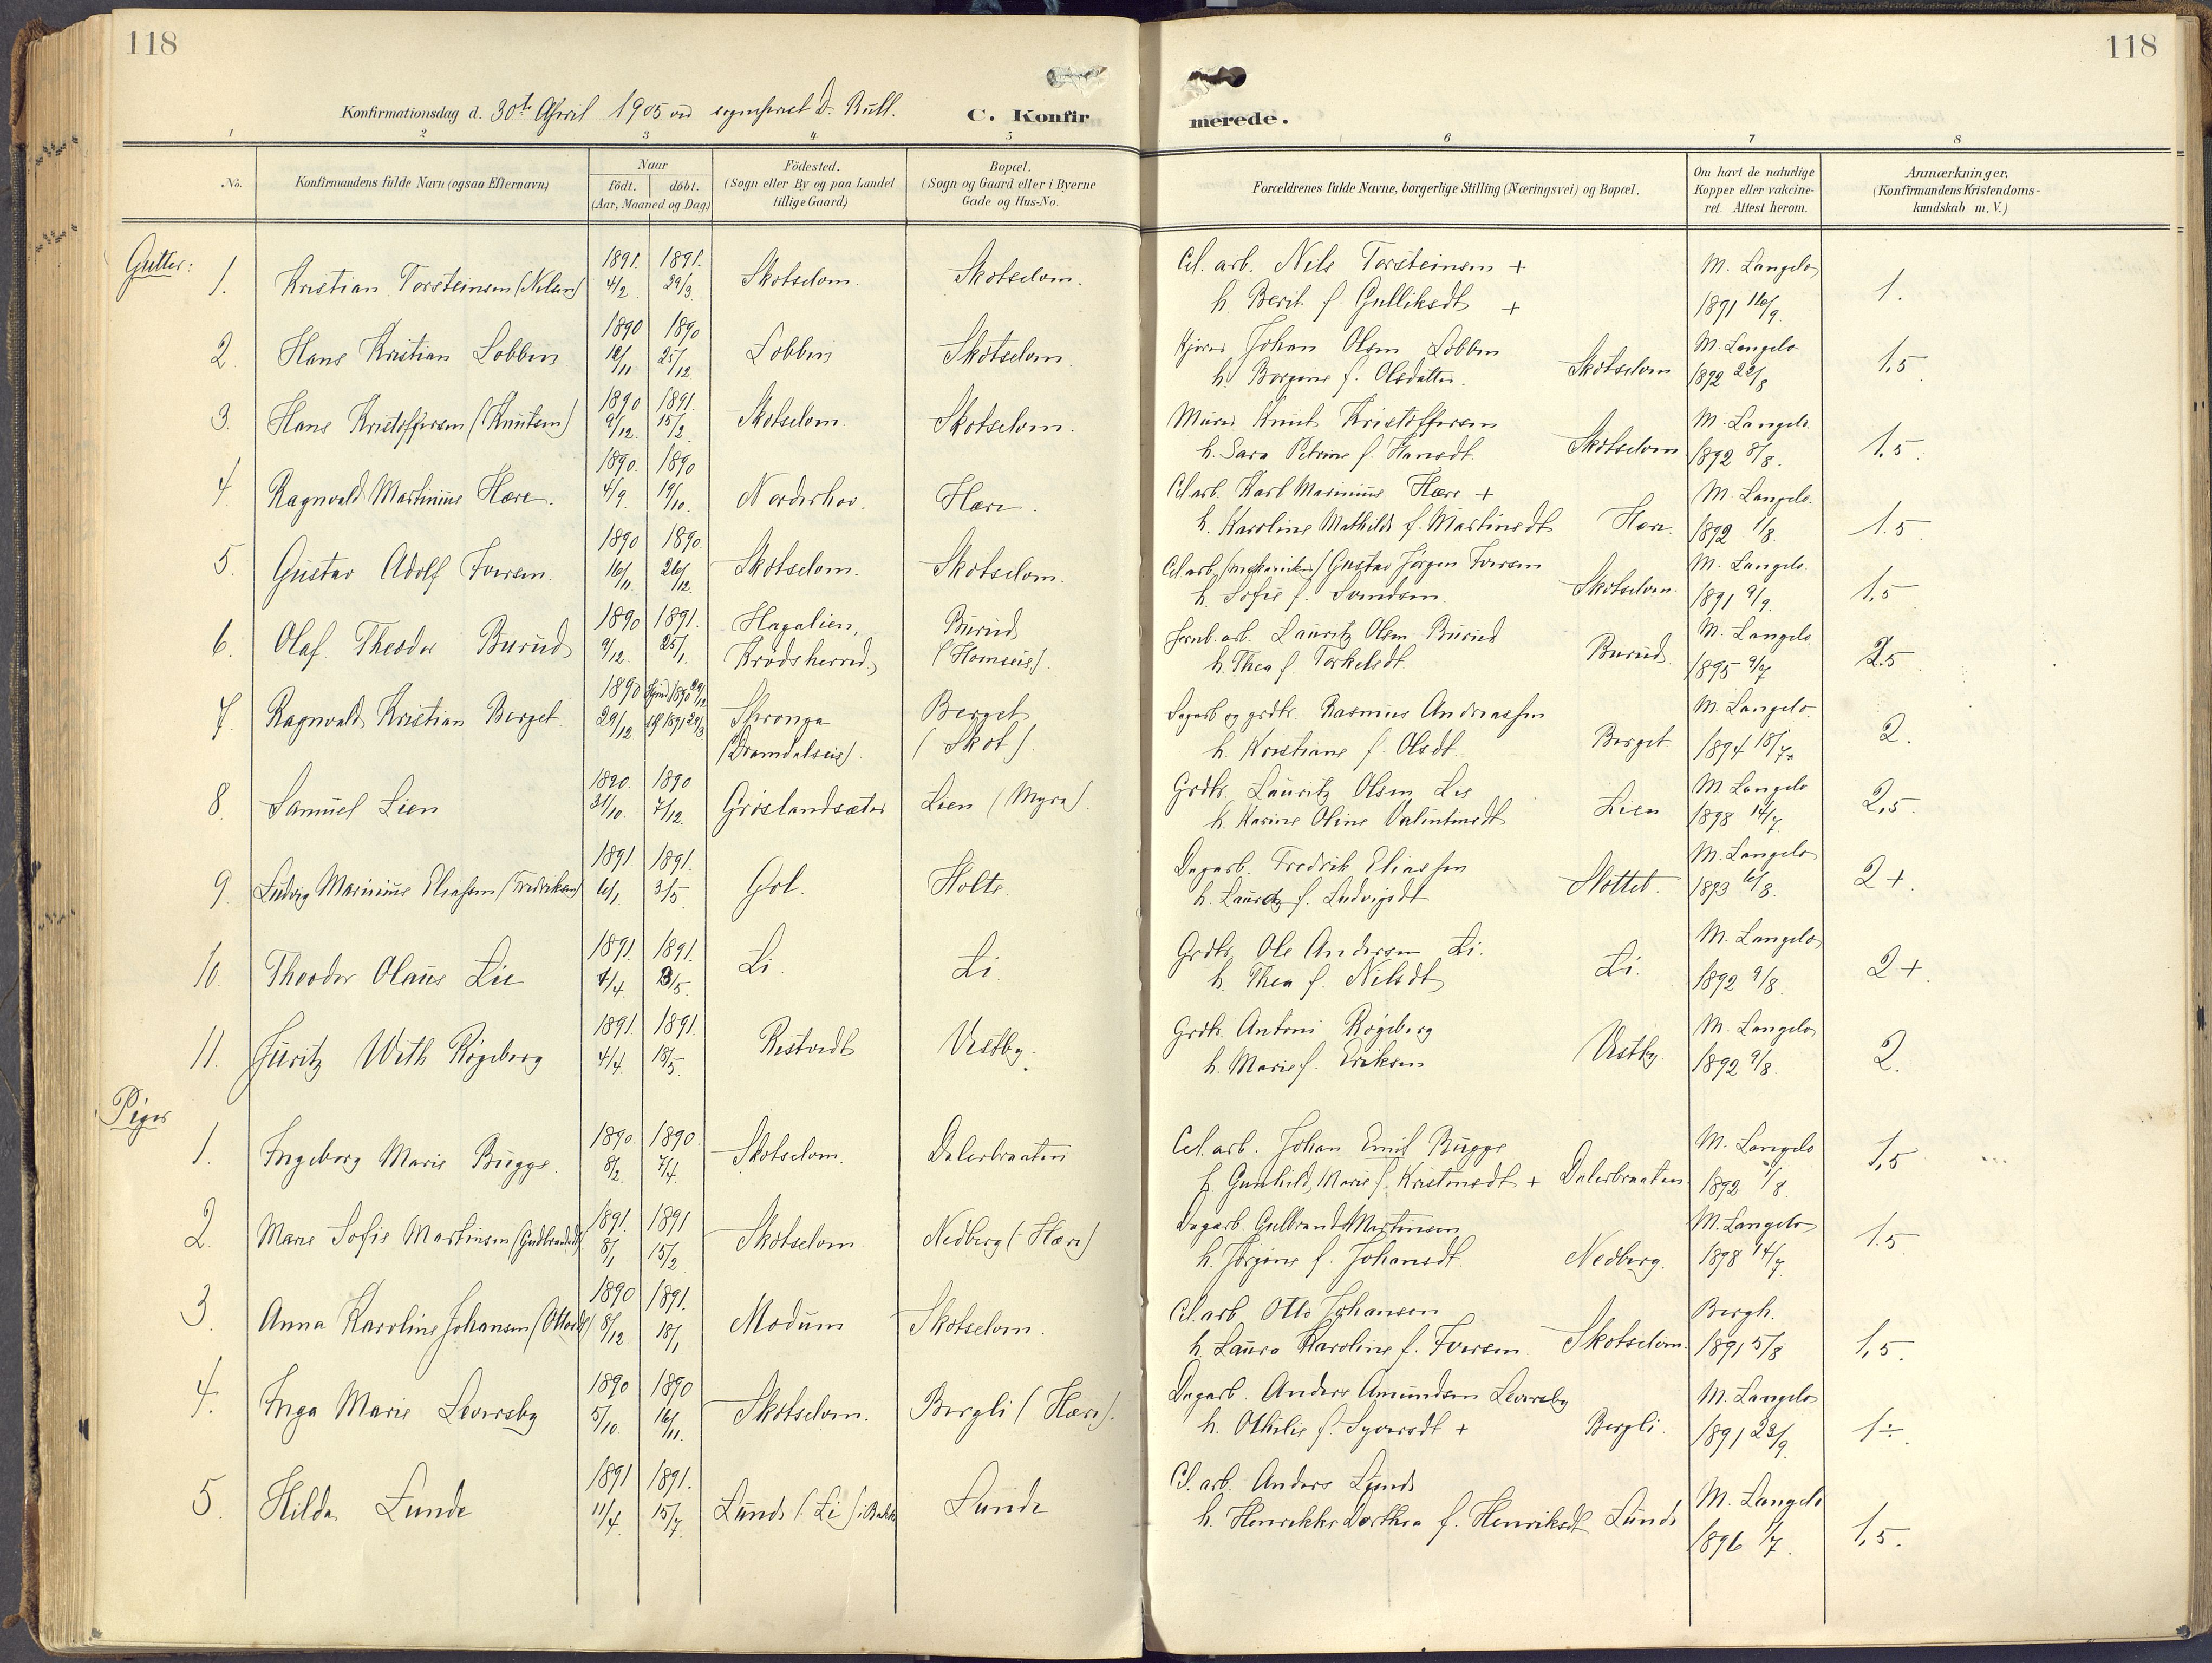 118
118
Konfirmationsdag d. 30te April 1905 ved sogneprest D. Bull.
C. Konfirmerede.
1 2 3 4 5 6 7 8
No.
Konfirmandens fulde Navn (ogsaa Efternavn)
Naar
födt. döbt.
(Aar, Maaned og Dag.)
Födested.
(Sogn eller By og paa Landet
tillige Gaard)
Bopæl.
(Sogn og Gaard eller i Byerne
Gade og Hus-No.
Forældrenes fulde Navne, borgerlige Stilling (Næringsvei) og Bopæl.
Om havt de naturlige
Kopper eller vakcine-
ret. Attest herom.
Anmærkninger.
(Konfirmandens Kristendoms-
kundskab m. V.)
Gutter:
1. Kristian Torsteinsen (Nilsen) 1891. 4/2 1891. 29/3 Skotselven. Skotselven. Cel. arb. Nils Torsteinsen +
h. Berit f. Gulliksdt + M. Langelo 1891 16/9. 1.
2. Hans Kristian Lobben 1890 12/11 1890 25/12. Lobben Skotselven. Kjører Johan Olsen Lobben
h. Bergine f. Olsdatter. Skotselven M. Langelo 1892 22/8 1,5.
3. Hans Kristoffersen (Knutsen) 1890 9/12. 1891. 15/2 Skotselven. Skotselven. Murer Knut Kristoffersen
h. Sara Petrine f. Hansdt. Skotselven M. Langelo. 1892 8/8. 1.5.
4. Ragnvald Martinius Hære. 1890. 4/9. 1890 19/10. Norderhov. Hære. Cel arb. Karl Marinius Hære +
h. Karoline Mathilde f. Martinsdt Hære. M. Langelo. 1892 1/8. 1.5.
5. Gustav Adolf Iversen 1890 16/11. 1890. 26/12. Skotselven. Skotselven. Cel arb. (mekaniker) Gustav Jørgen Iversen
h. Sofie f. Svendsen. Skotselven. M. Langelo. 1891 9/9. 1,5.
6. Olaf Theodor Burud 1890 9/12. 1891. 25/1. Hagalien, Krødsherred, Burud (Homseie). Jernb. arb. Lauritz Olsen Burud
h. Thea f. Torkelsdt. Burud. M. Langelo. 1895 9/7 2.5
7. Ragnvald Kristian Berget. 1890 29/12. Hjemd 1890 29/12 1891 29/3 Skronga (Dramdalseie). Berget (Skot). Dagarb og grdbr. Rasmus Andreassen
h. Kristiane f. Olsdt. Berget. M. Langelo. 1894 18/7. 2.
8. Samuel Lien 1890. 31/10. 1890 7/12. Grøslandsæter Lien (Myra). Grdbr. Lauritz Olsen Lie
h. Karine Oline Valentinsdt Lien M. Langelo 1898 14/7. 2,5.
9. Ludvig Marinius Eliassen (Fredriksen) 1891. 6/1. 1891. 3/5 Gol. Holte. Dagarb. Fredrik Eliassen
h. Laura f. Ludvigsdt Slottet. M. Langelo 1893 6/8. 2+.
10. Theodor Olaus Lie 1891 4/4. 1891. 3/5. Li. Li. Grdbr. Ole Andersen Li.
h. Thea f. Nilsdt Li. M. Langelo 1892 9/8. 2+.
11. Juritz With Røgeberg 1891. 4/4. 1891. 18/5. Ristvedt Vestby. Grdbr. Antoni Røgeberg
h. Marie f. Eriksen Vestby. M. Langelo 1892 9/8. 2.
Piger
1. Ingeborg Marie Bugge. 1890. 8/2. 1890. 7/4. Skotselven. Dalerbraaten Cel. arb. Johan Emil Bugge
h. Gunhild Marie f. Kristensdt + Dalerbraaten. M. Langelo 1892 1/8. 1,5
2. Marie Sofie Martinsen (Gudbrandsdt). 1891. 8/1 1891 15/2 Skotselven Nedberg (Hære) Dagarb. Gulbrand Martinsen
h. Jørgine f. Johansdt. Nedberg. M. Langelo 1898 14/7. 1.5
3. Anna Karoline Johansen (Ottosdt) 1890 8/12 1891. 18/1 Modum Skotselven. Cel. arb. Otto Johansen
h. Laura Karoline f. Iversen. Skotselven. Bergh. 1891 5/8 1,5.
4. Inga Marie Leversby 1890 5/10. 1890 16/11. Skotselven. Bergli (Hære). Dagarb. Anders Amundsen Leversby
h. Othilie f. Syversdt + Bergli. M. Langelo 1891 22/9. 1÷.
5. Hilda Lunde 1891 11/4. 1891. 15/7. Lunde (Li) Lunde Cel. arb. Anders Lunde
h. Henrikke Dorthea f. Henriksdt Lunde M. Langelo 1896 1/7. 1,5.